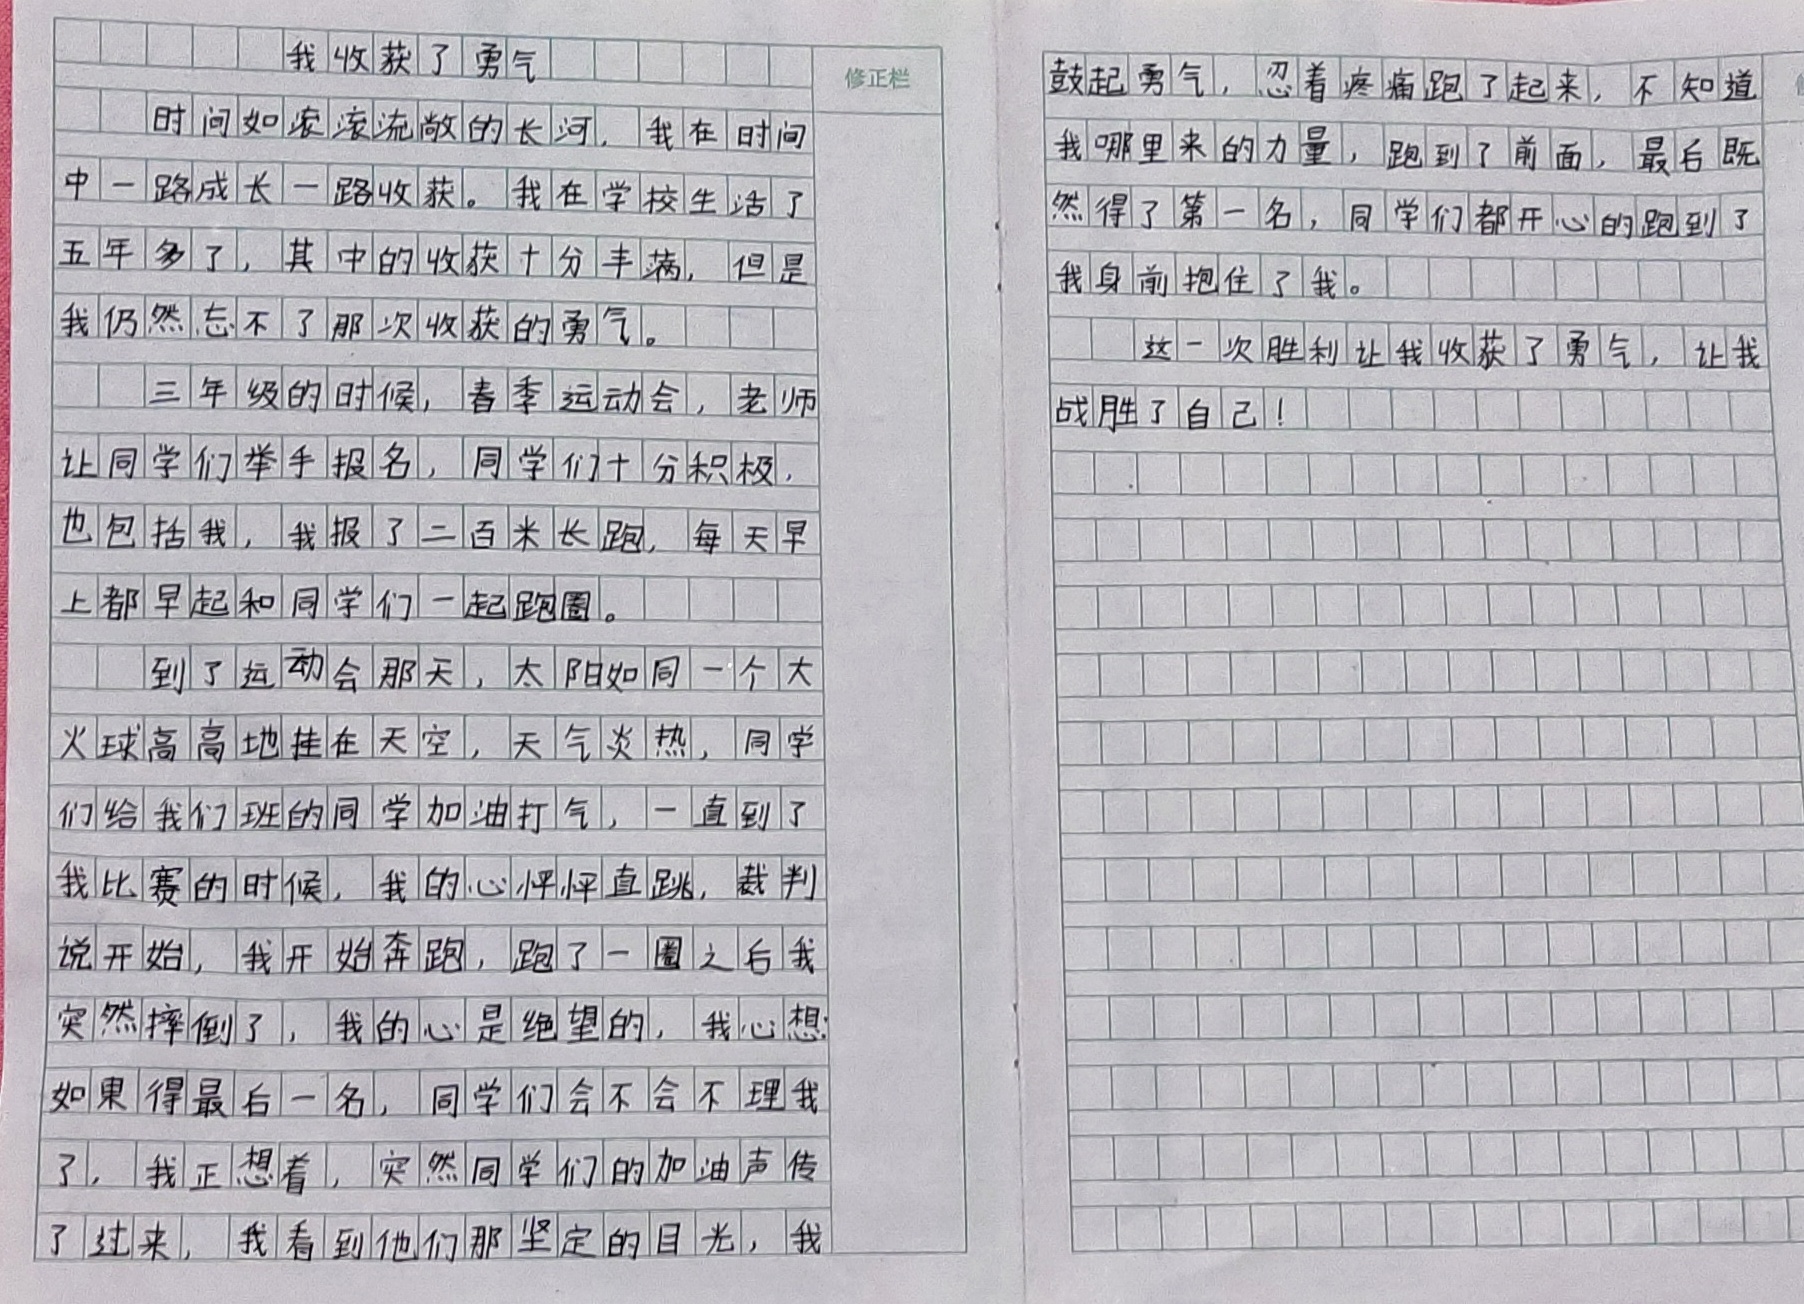 我收获了勇气
修正栏
时间如滚滚流敞的长河，我在时间
中一路成长一路收获。我在学校生活了
五年多了，其中的收获十分丰满，但是
我仍然忘不了那次收获的勇气。
三年级的时候，春季运动会，老师
让同学们举手报名，同学们十分积极，
也包括我，我报了二百米长跑，每天早
上都早起和同学们一起跑圈。
到了运动会那天，太阳如同一个大
火球高高地挂在天空，天气炎热，同学
们给我们班的同学加油打气，一直到了
我比赛的时候，我的心怦怦直跳，裁判
说开始，我开始奔跑，跑了一圈之后我
突然摔倒了，我的心是绝望的，我心想:
如果得最后一名，同学们会不会不理我
了，我正想着，突然同学们的加油声传
了过来，我看到他们那坚定的目光，我
鼓起勇气，忍着疼痛跑了起来，不知道
我哪里来的力量，跑到了前面，最后既
然得了第一名，同学们都开心的跑到了
我身前抱住了我。
这一次胜利让我收获了勇气，让我
战胜了自己！